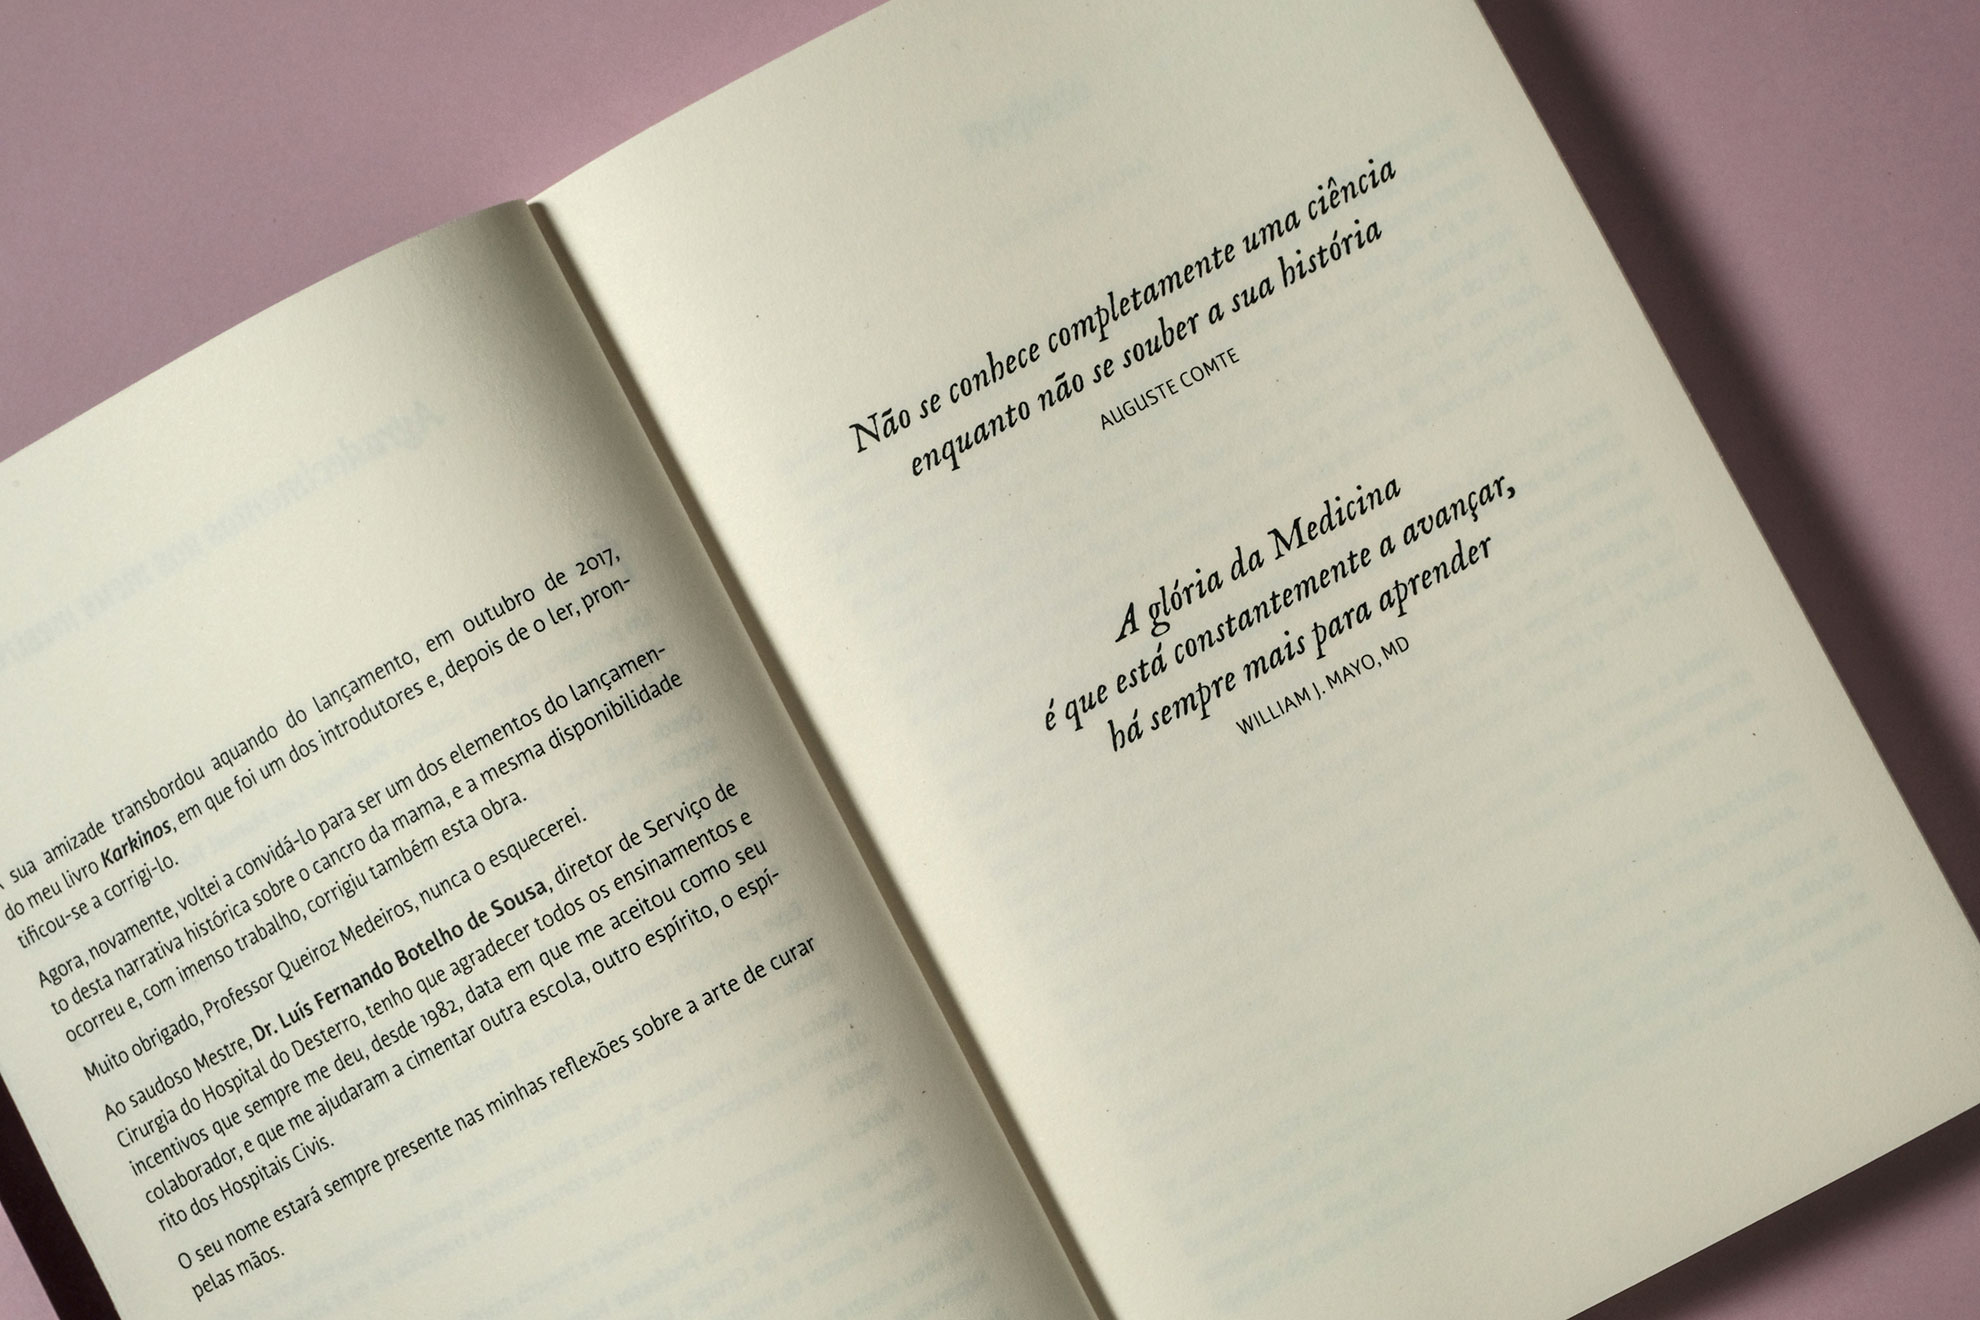 sua amizade transbordou aquando do lançamento, em outubro de 2017,
do meu livro Karkinos, em que foi um dos introdutores e, depois de o ler, pron-
tificou-se a corrigi-lo.
Agora, novamente, voltei a convidá-lo para ser um dos elementos do lançamen-
to desta narrativa histórica sobre o cancro da mama, e a mesma disponibilidade
ocorreu e, com imenso trabalho, corrigiu também esta obra.
Muito obrigado, Professor Queiroz Medeiros, nunca o esquecerei.
Ao saudoso Mestre, Dr. Luís Fernando Botelho de Sousa, diretor de Serviço de
Cirurgia do Hospital do Desterro, tenho que agradecer todos os ensinamentos e
incentivos que sempre me deu, desde 1982, data em que me aceitou como seu
colaborador, e que me ajudaram a cimentar outra escola, outro espírito, o espí-
rito dos Hospitais Civis.
O seu nome estará sempre presente nas minhas reflexões sobre a arte de curar
pelas mãos.
Não se conhece completamente uma ciência
enquanto não se souber a sua história
AUGUSTE COMTE
A glória da Medicina
é que está constantemente a avançar,
há sempre mais para aprender
WILLIAM J. MAYO, MD